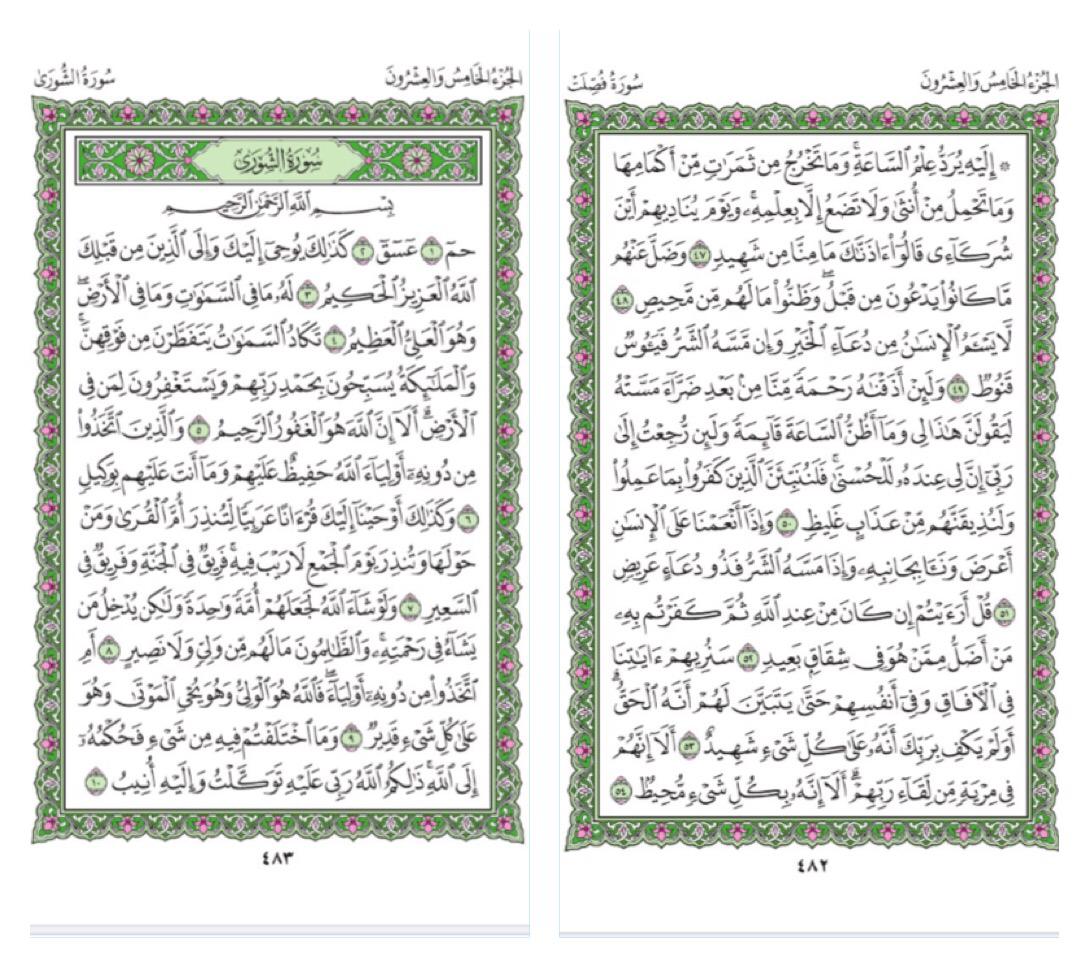 الجُزْءُ الخَامِسُ وَالعِشْرُونَ
سُورَةُ فُصِّلَتْ
۞ إِلَيْهِ يُرَدُّ عِلْمُ ٱلسَّاعَةِۚ وَمَا تَخْرُجُ مِن ثَمَرَٰتٖ مِّنْ أَكْمَامِهَا
وَمَا تَحْمِلُ مِنْ أُنثَىٰ وَلَا تَضَعُ إِلَّا بِعِلْمِهِۦۚ وَيَوْمَ يُنَادِيهِمْ أَيْنَ
شُرَكَآءِى قَالُوٓا۟ ءَاذَنَّٰكَ مَا مِنَّا مِن شَهِيدٖ ٤٧ وَضَلَّ عَنْهُم
مَّا كَانُوا۟ يَدْعُونَ مِن قَبْلُۖ وَظَنُّوا۟ مَا لَهُم مِّن مَّحِيصٖ ٤٨
لَّا يَسْـَٔمُ ٱلْإِنسَٰنُ مِن دُعَآءِ ٱلْخَيْرِ وَإِن مَّسَّهُ ٱلشَّرُّ فَيَـُٔوسٌ
قَنُوطٌ ٤٩ وَلَئِنْ أَذَقْنَٰهُ رَحْمَةٗ مِّنَّا مِنۢ بَعْدِ ضَرَّآءَ مَسَّتْهُ
لَيَقُولَنَّ هَٰذَا لِى وَمَآ أَظُنُّ ٱلسَّاعَةَ قَآئِمَةٗ وَلَئِن رُّجِعْتُ إِلَىٰ
رَبِّىٓ إِنَّ لِى عِندَهُۥ لَلْحُسْنَىٰۚ فَلَنُنَبِّئَنَّ ٱلَّذِينَ كَفَرُوا۟ بِمَا عَمِلُوا۟
وَلَنُذِيقَنَّهُم مِّنْ عَذَابٍ غَلِيظٖ ٥٠ وَإِذَآ أَنْعَمْنَا عَلَى ٱلْإِنسَٰنِ
أَعْرَضَ وَنَـَٔا بِجَانِبِهِۦ وَإِذَا مَسَّهُ ٱلشَّرُّ فَذُو دُعَآءٍ عَرِيضٖ
٥١ قُلْ أَرَءَيْتُمْ إِن كَانَ مِنْ عِندِ ٱللَّهِ ثُمَّ كَفَرْتُم بِهِۦ
مَنْ أَضَلُّ مِمَّنْ هُوَ فِى شِقَاقٍۭ بَعِيدٖ ٥٢ سَنُرِيهِمْ ءَايَٰتِنَا
فِى ٱلْءَافَاقِ وَفِىٓ أَنفُسِهِمْ حَتَّىٰ يَتَبَيَّنَ لَهُمْ أَنَّهُ ٱلْحَقُّۗ
أَوَلَمْ يَكْفِ بِرَبِّكَ أَنَّهُۥ عَلَىٰ كُلِّ شَىْءٖ شَهِيدٌ ٥٣ أَلَآ إِنَّهُمْ
فِى مِرْيَةٖ مِّن لِّقَآءِ رَبِّهِمْۗ أَلَآ إِنَّهُۥ بِكُلِّ شَىْءٖ مُّحِيطٌۢ ٥٤
٤٨٢
الجُزْءُ الخَامِسُ وَالعِشْرُونَ
سُورَةُ الشُّورَىٰ
سُورَةُ الشُّورَىٰ
بِسْمِ ٱللَّهِ ٱلرَّحْمَٰنِ ٱلرَّحِيمِ
حمٓ ١ عٓسٓقٓ ٢ كَذَٰلِكَ يُوحِىٓ إِلَيْكَ وَإِلَى ٱلَّذِينَ مِن قَبْلِكَ
ٱللَّهُ ٱلْعَزِيزُ ٱلْحَكِيمُ ٣ لَهُۥ مَا فِى ٱلسَّمَٰوَٰتِ وَمَا فِى ٱلْأَرْضِۖ
وَهُوَ ٱلْعَلِىُّ ٱلْعَظِيمُ ٤ تَكَادُ ٱلسَّمَٰوَٰتُ يَتَفَطَّرْنَ مِن فَوْقِهِنَّۚ
وَٱلْمَلَٰٓئِكَةُ يُسَبِّحُونَ بِحَمْدِ رَبِّهِمْ وَيَسْتَغْفِرُونَ لِمَن فِى
ٱلْأَرْضِۗ أَلَآ إِنَّ ٱللَّهَ هُوَ ٱلْغَفُورُ ٱلرَّحِيمُ ٥ وَٱلَّذِينَ ٱتَّخَذُوا۟
مِن دُونِهِۦٓ أَوْلِيَآءَ ٱللَّهُ حَفِيظٌ عَلَيْهِمْ وَمَآ أَنتَ عَلَيْهِم بِوَكِيلٖ
٦ وَكَذَٰلِكَ أَوْحَيْنَآ إِلَيْكَ قُرْءَانًا عَرَبِيّٗا لِّتُنذِرَ أُمَّ ٱلْقُرَىٰ وَمَنْ
حَوْلَهَا وَتُنذِرَ يَوْمَ ٱلْجَمْعِ لَا رَيْبَ فِيهِۚ فَرِيقٌ فِى ٱلْجَنَّةِ وَفَرِيقٌ فِى
ٱلسَّعِيرِ ٧ وَلَوْ شَآءَ ٱللَّهُ لَجَعَلَهُمْ أُمَّةٗ وَٰحِدَةٗ وَلَٰكِن يُدْخِلُ مَن
يَشَآءُ فِى رَحْمَتِهِۦۚ وَٱلظَّٰلِمُونَ مَا لَهُم مِّن وَلِىّٖ وَلَا نَصِيرٍ ٨ أَمِ
ٱتَّخَذُوا۟ مِن دُونِهِۦٓ أَوْلِيَآءَۖ فَٱللَّهُ هُوَ ٱلْوَلِىُّ وَهُوَ يُحْىِ ٱلْمَوْتَىٰ وَهُوَ
عَلَىٰ كُلِّ شَىْءٖ قَدِيرٌ ٩ وَمَا ٱخْتَلَفْتُمْ فِيهِ مِن شَىْءٖ فَحُكْمُهُۥٓ
إِلَى ٱللَّهِۚ ذَٰلِكُمُ ٱللَّهُ رَبِّى عَلَيْهِ تَوَكَّلْتُ وَإِلَيْهِ أُنِيبُ ١٠
٤٨٣